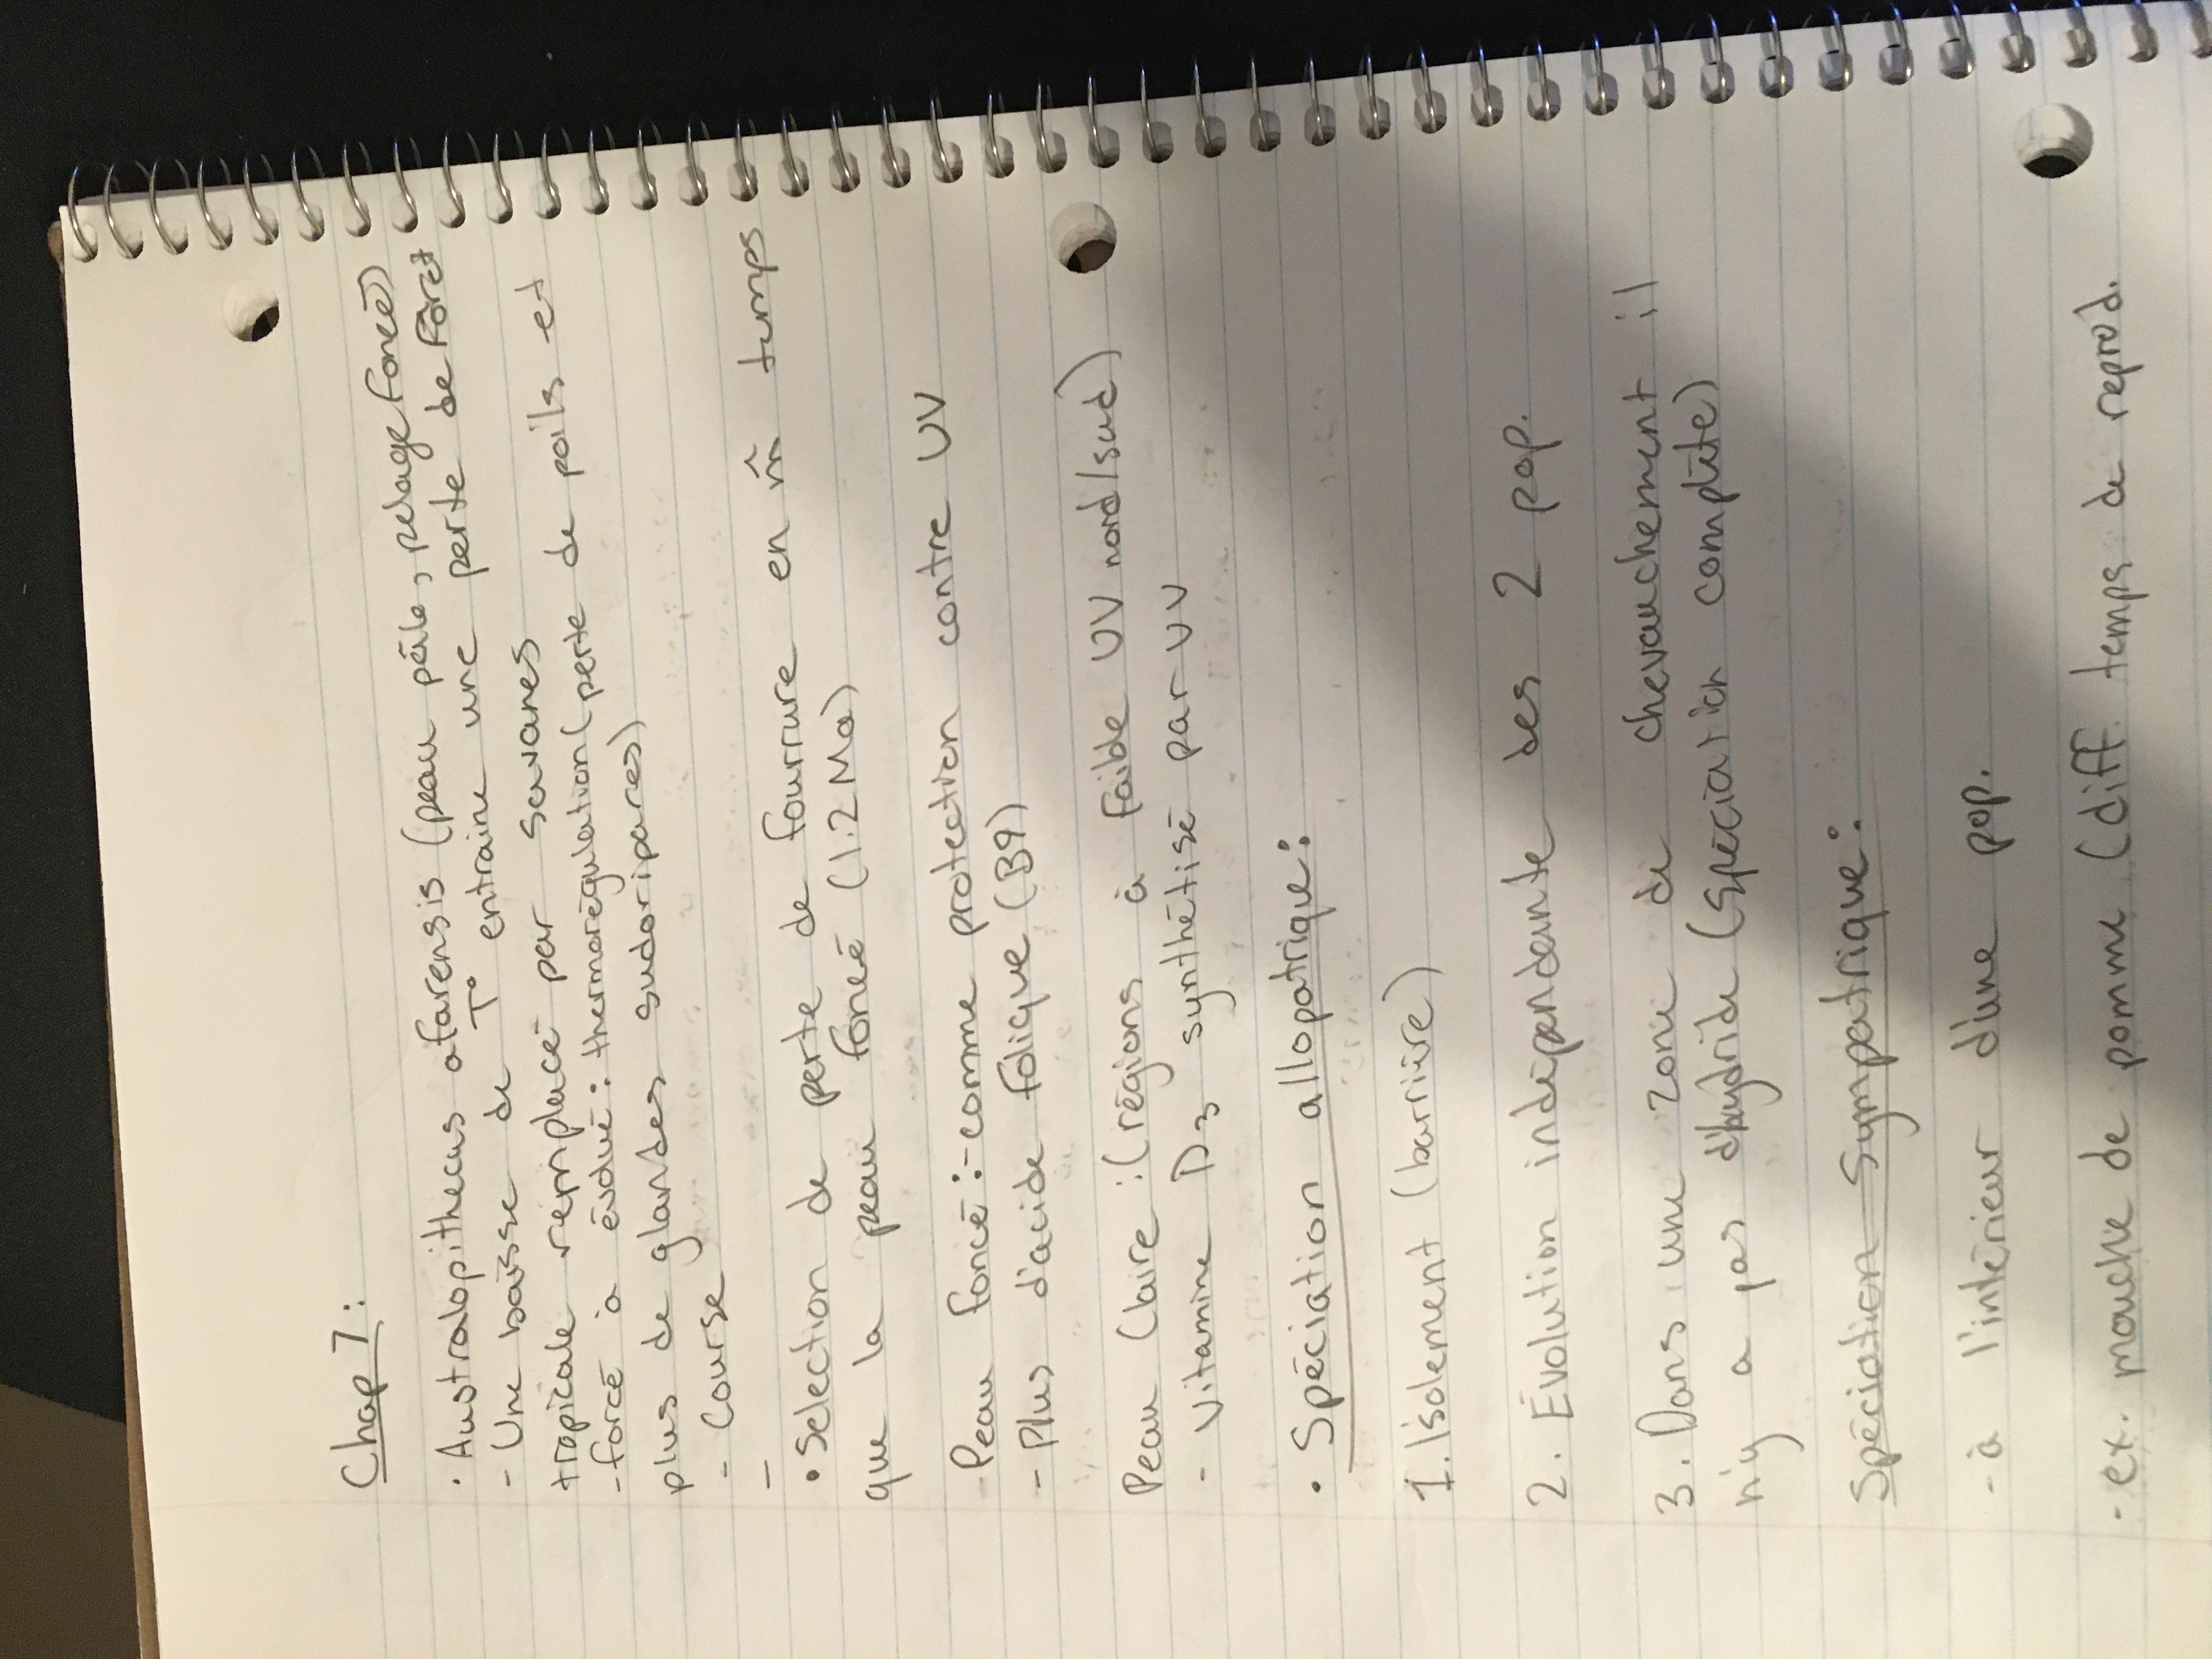 Chap 7:
· Australopithecus afarensis (peau pâle, pelage foncé)
- Une baisse de T° entraine une perte de forêt
tropicale remplacé par savanes
- forcé à évolué: thermorégulation (perte de poils et
plus de glandes sudoripares)
- Course
-
• Selection de perte de fourrure en m̂ temps
que la peau foncé (1.2 Ma)
- Peau foncé :- comme protection contre UV
- Plus d'acide folique (B9)
Peau Claire : (régions à faible UV nord/sud)
- Vitamine D3 synthétisé par UV
• Spéciation allopatrique:
1. Isolement (barrière)
2. Évolution indépendante des 2 pop.
3. Dans une zone de chevauchement il
n'y a pas d'hydride (spéciation complète)
Spéciation Sympatrique:
- à l'intérieur d'une pop.
- ex. mouche de pomme (diff. temps de reprod.